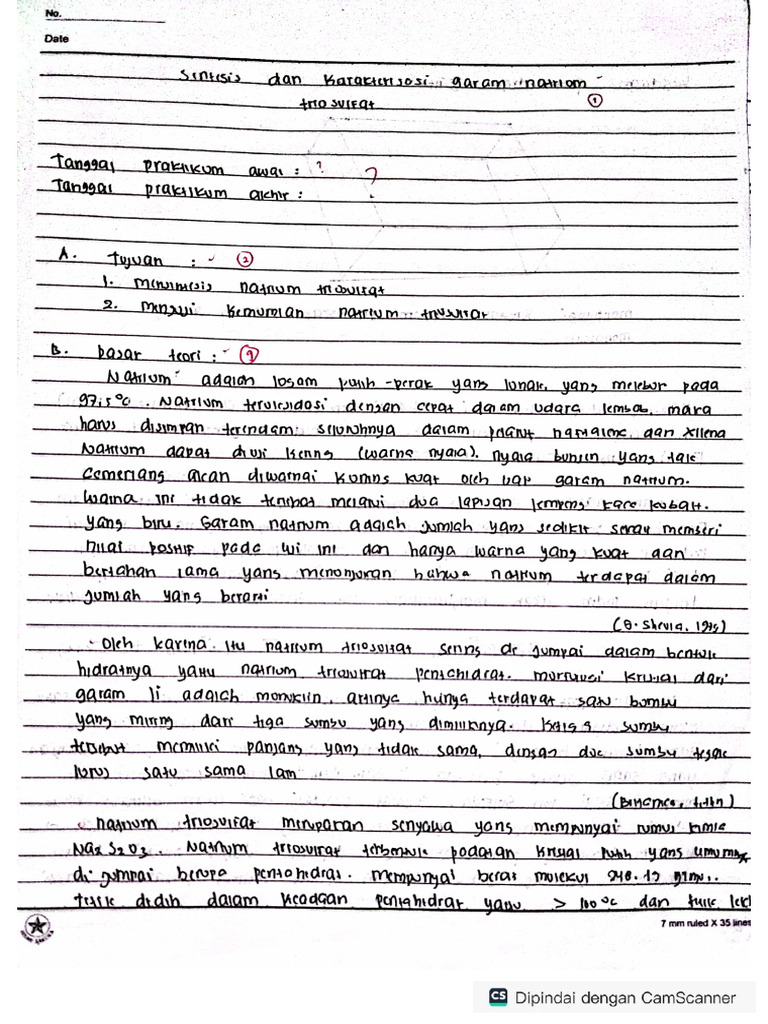 No.
Date
Sintesis dan Karakterisasi garam natrium
tiosulfat
1
Tanggal praktikum awal : ?
Tanggal praktikum akhir : ?
A. Tujuan : 2
1. Mensintesis natrium tiosulfat
2. Menguji kemurnian natrium tiosulfat
B. Dasar teori : 9
Natrium adalah logam putih-perak yang lunak, yang melebur pada
97,5°C. Natrium teroksidasi dengan cepat dalam udara lembab, maka
harus disimpan terendam seluruhnya dalam pelarut naftalena, dan xilena
Natrium dapat diuji kering (warna nyala). nyala bunsen yang tak
cemerlang akan diwarnai kuning kuat oleh uap garam natrium.
Warna ini tidak terlihat melalui dua lapisan lempeng kaca kobalt.
yang biru. Garam natrium adalah jumlah yang sedikit sekali memberi
nilai positif pada uji ini dan hanya warna yang kuat dan
bertahan lama yang menonjukan bahwa natrium terdapat dalam
jumlah yang berarti
(G. Shevla. 1975)
Oleh karena itu natrium tiosulfat sering di jumpai dalam bentuk
hidratnya yaitu natrium tiosulfat pentahidrat. Morfologi kristal dari
garam li adalah monoklin, artinya hanya terdapat satu sumbu
yang miring dari tiga sumbu yang dimiliknya. Ketiga sumbu
tersebut memiliki panjang yang tidak sama, dengan dua sumbu tegak
lurus satu sama lain
natrium tiosulfat merupakan senyawa yang mempunyai rumus kimia
Na2S2O3. Natrium tiosulfat terbentuk padatan kristal putih yang umumnya
di jumpai berupa pentahidrat. mempunyai berat molekul 248.17
titik didih dalam keadaan pentahidrat yaitu > 100°C dan titik
7 mm ruled X 35 lines
CS Dipindai dengan CamScanner